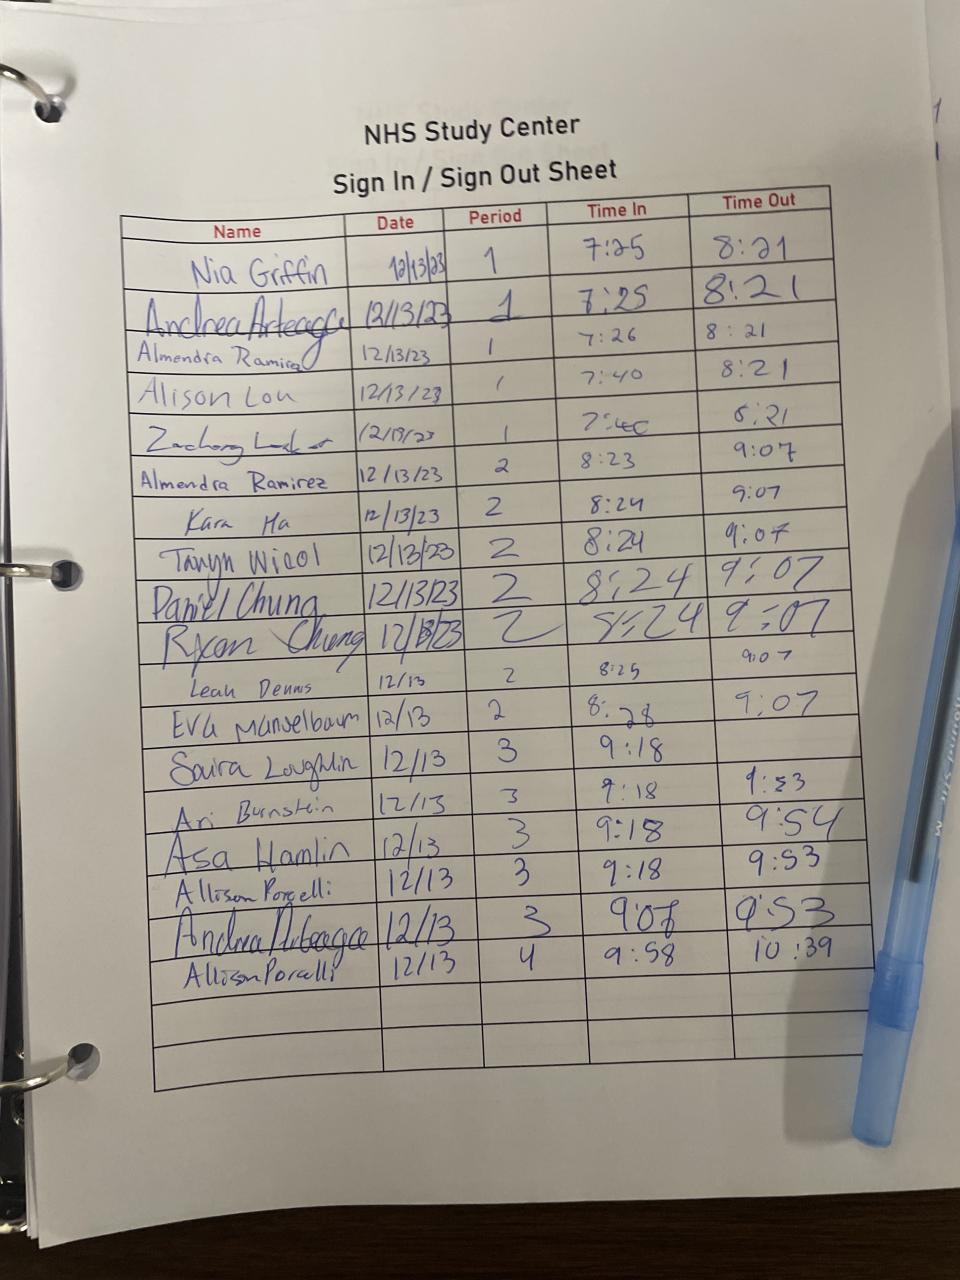 NHS Study Center
Sign In / Sign Out Sheet
Name Date Period Time In Time Out
Nia Griffin 12/13/23 1 7:25 8:21
Andrea Arteaga 12/13/23 1 7:25 8:21
Almendra Ramirez 12/13/23 1 7:26 8:21
Alison Lou 12/13/23 1 7:40 8:21
Zachary 12/13/23 1 7:40 8:21
Almendra Ramirez 12/13/23 2 8:23 9:07
Kara Ha 12/13/23 2 8:24 9:07
Taryn Nicol 12/13/23 2 8:24 9:07
Daniel Chung 12/13/23 2 8:24 9:07
Ryan Chung 12/13/23 2 8:24 9:07
Leah Dennis 12/13 2 8:25 9:07
Eva Mandelbaum 12/13 2 8:28 9:07
Saira Loughlin 12/13 3 9:18
Ari Burnstein 12/13 3 9:18 9:53
Asa Hamlin 12/13 3 9:18 9:54
Allison Porcelli 12/13 3 9:18 9:53
Andrea Arteaga 12/13 3 9:07 9:53
Allison Porcelli 12/13 4 9:58 10:39